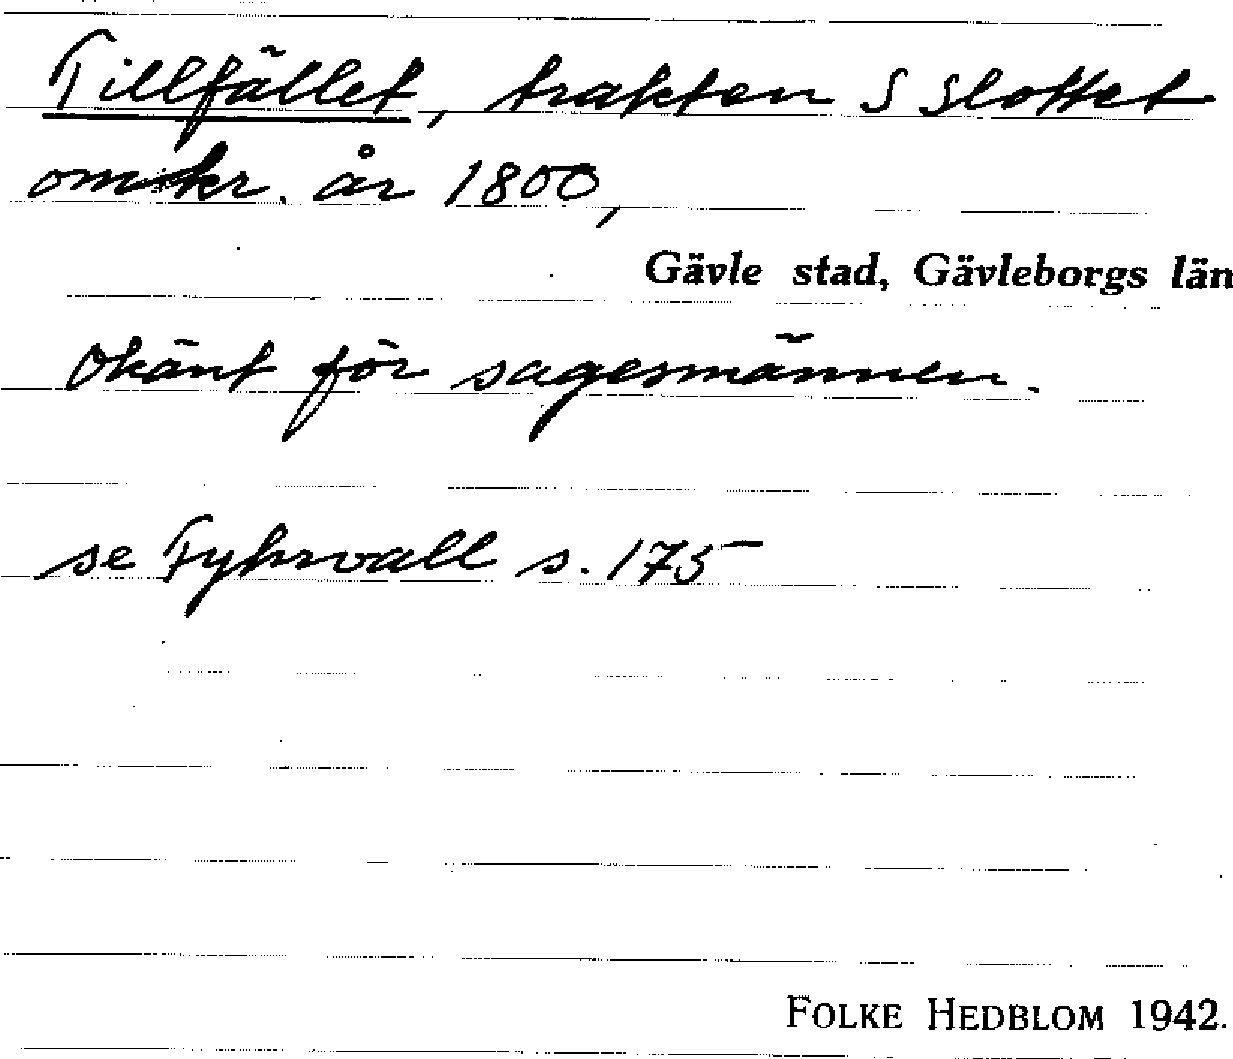 Tillfället, trakten S slottet
omkr. år 1800,
Gävle stad, Gävleborgs län
Okänt för sagesmännen.
se Fyhrvall s. 175
FOLKE HEDBLOM 1942.